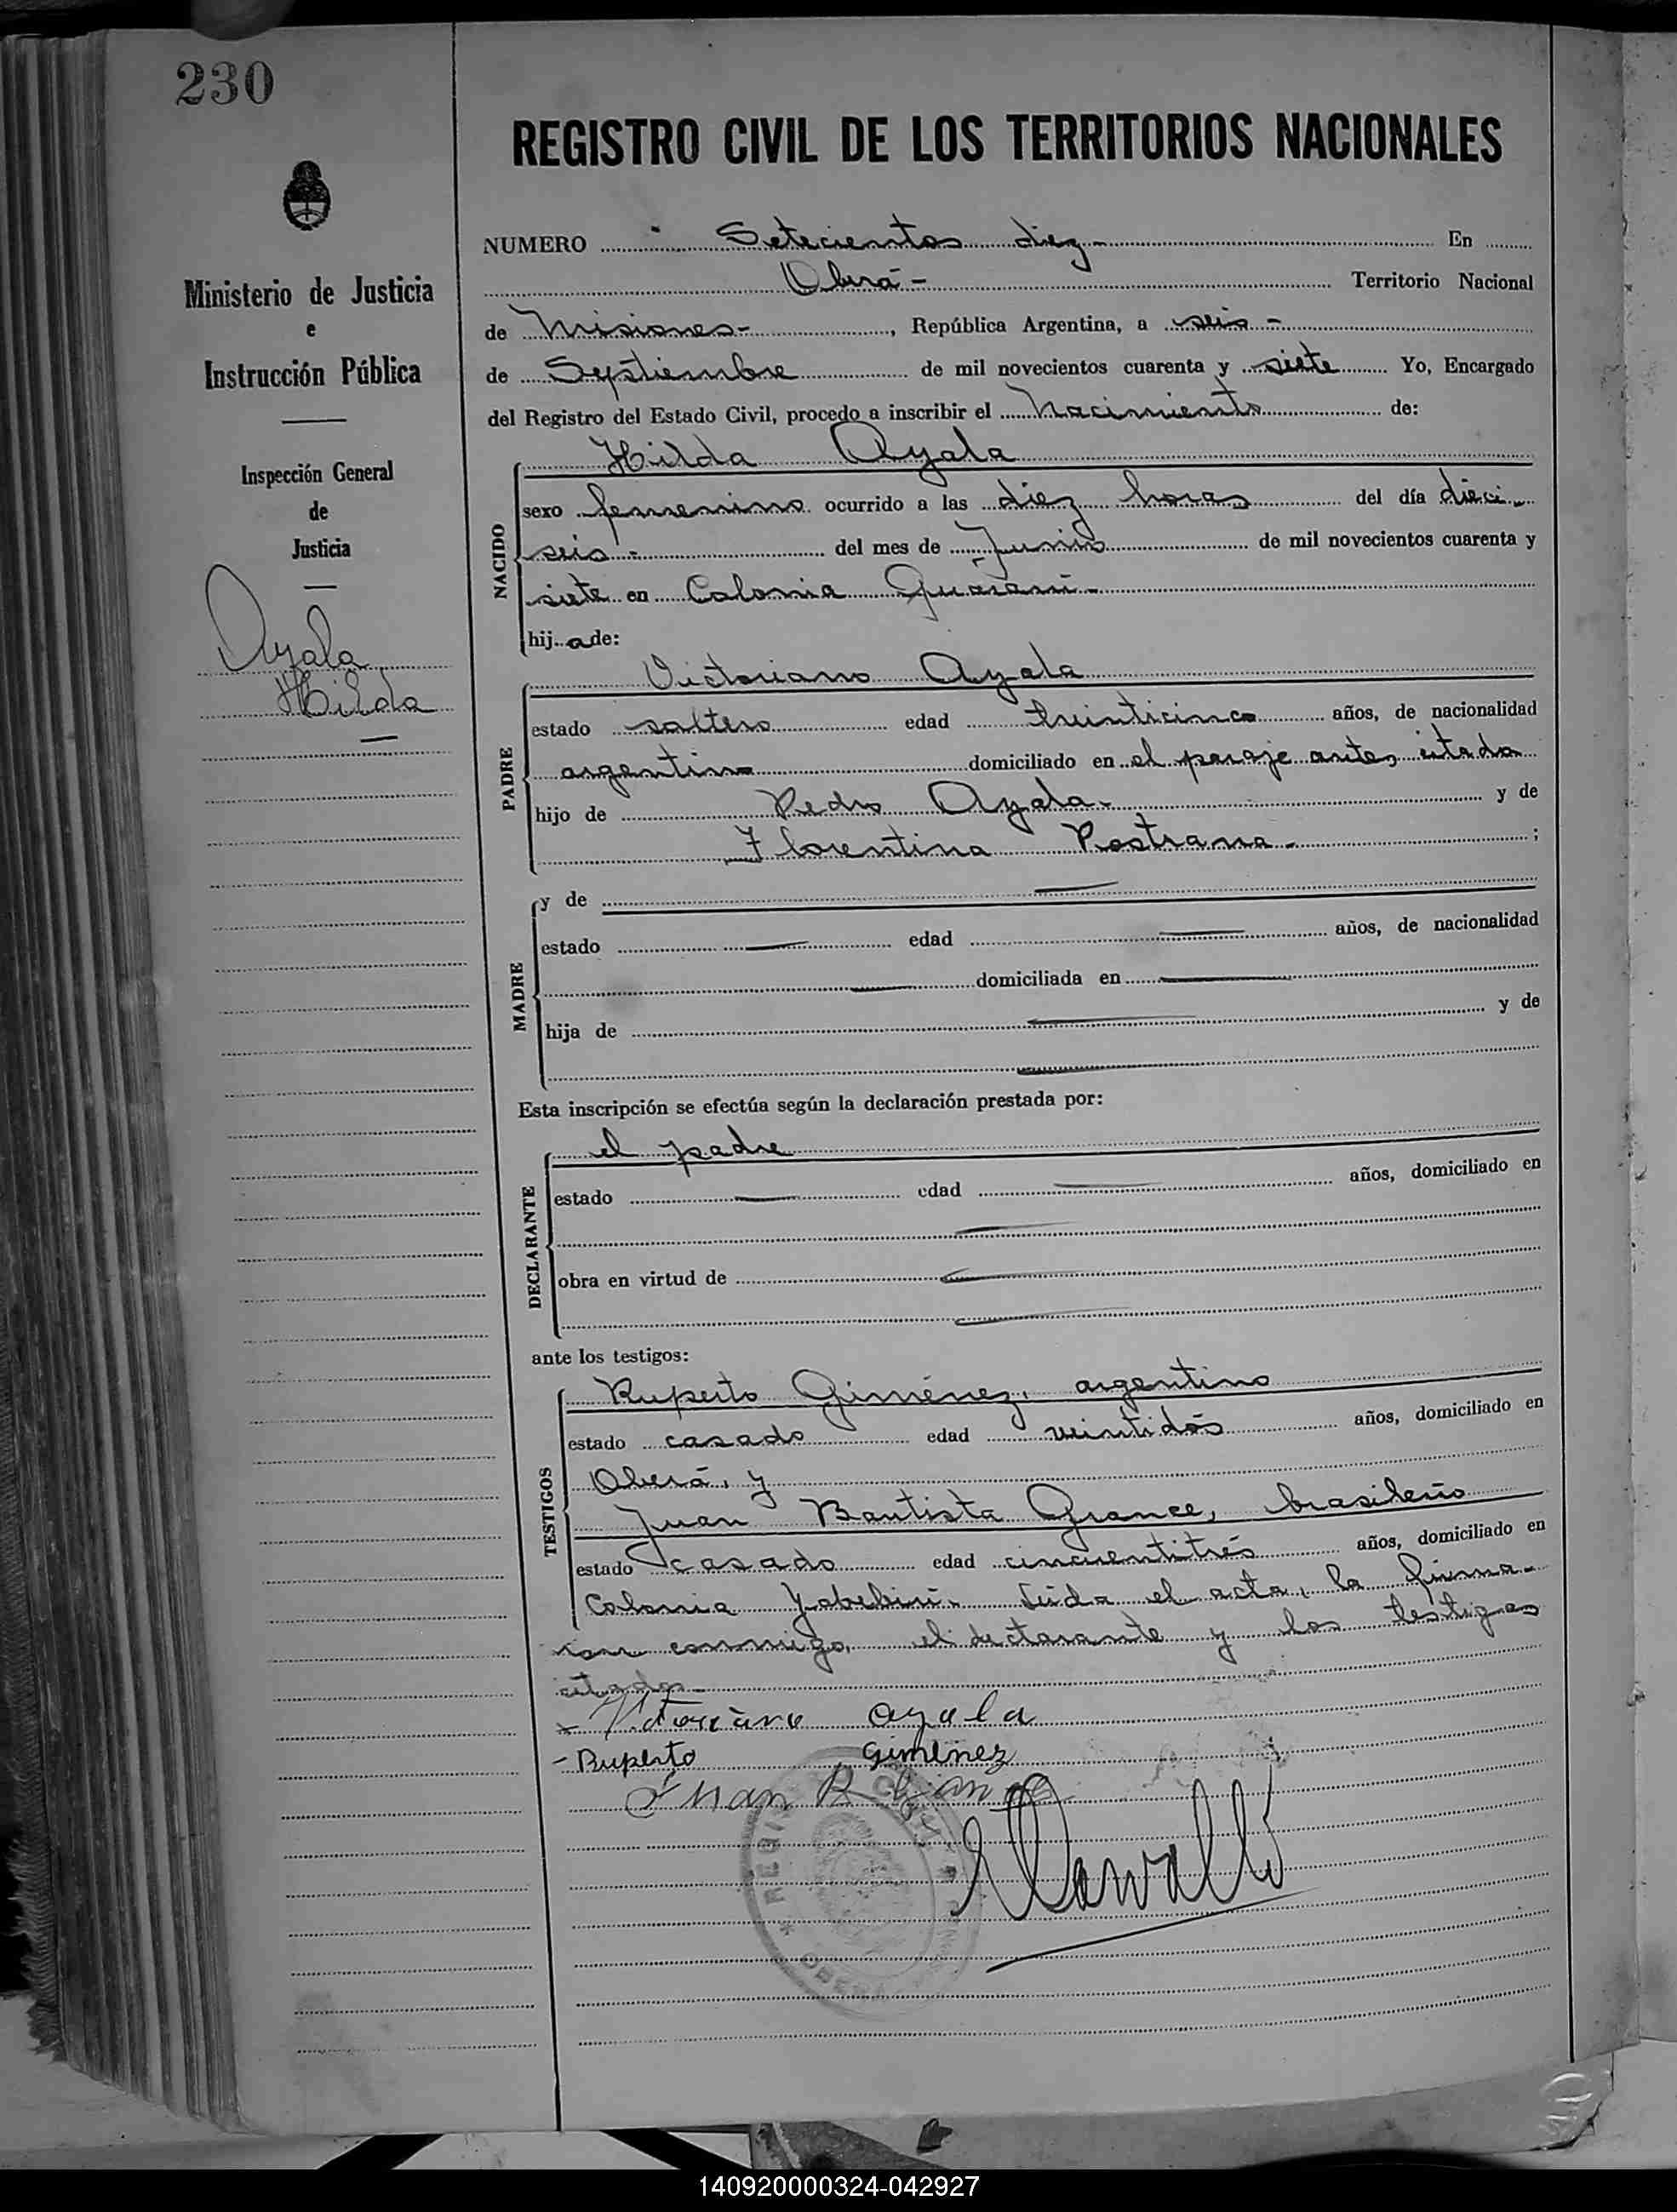 230
REGISTRO CIVIL DE LOS TERRITORIOS NACIONALES
Ministerio de Justicia
e
Instrucción Pública
Inspección General
de
Justicia
Ayala
Hilda
NUMERO Setecientos diez - En
Oberá - Territorio Nacional
de Misiones - , República Argentina, a seis -
de Septiembre de mil novecientos cuarenta y siete Yo, Encargado
del Registro del Estado Civil, procedo a inscribir el Nacimiento de:
NACIDO
Hilda Ayala
sexo femenino ocurrido a las diez horas del día dieci
seis - del mes de Junio de mil novecientos cuarenta y
siete en Colonia Guaraní -
hij a de:
PADRE
Victoriano Ayala
estado soltero edad treinticinco años, de nacionalidad
argentino domiciliado en el paraje antes citado
hijo de Pedro Ayala - y de
Florentina Pastrana - ;
MADRE
y de
estado edad años, de nacionalidad
domiciliada en
hija de y de
Esta inscripción se efectúa según la declaración prestada por:
DECLARANTE
el padre
estado edad años, domiciliado en
obra en virtud de
ante los testigos:
TESTIGOS
Ruperto Giménez, argentino
estado casado edad veintidós años, domiciliado en
Oberá, y
Juan Bautista Grance, brasileño
estado casado edad cincuentitrés años, domiciliado en
Colonia Yabebirí. Leída el acta, la firma-
ron conmigo, el declarante y los testigos
citados -
Victoriano ayala
- Ruperto Gimenez
Juan B
REGIS
OBERÁ
140920000324-042927